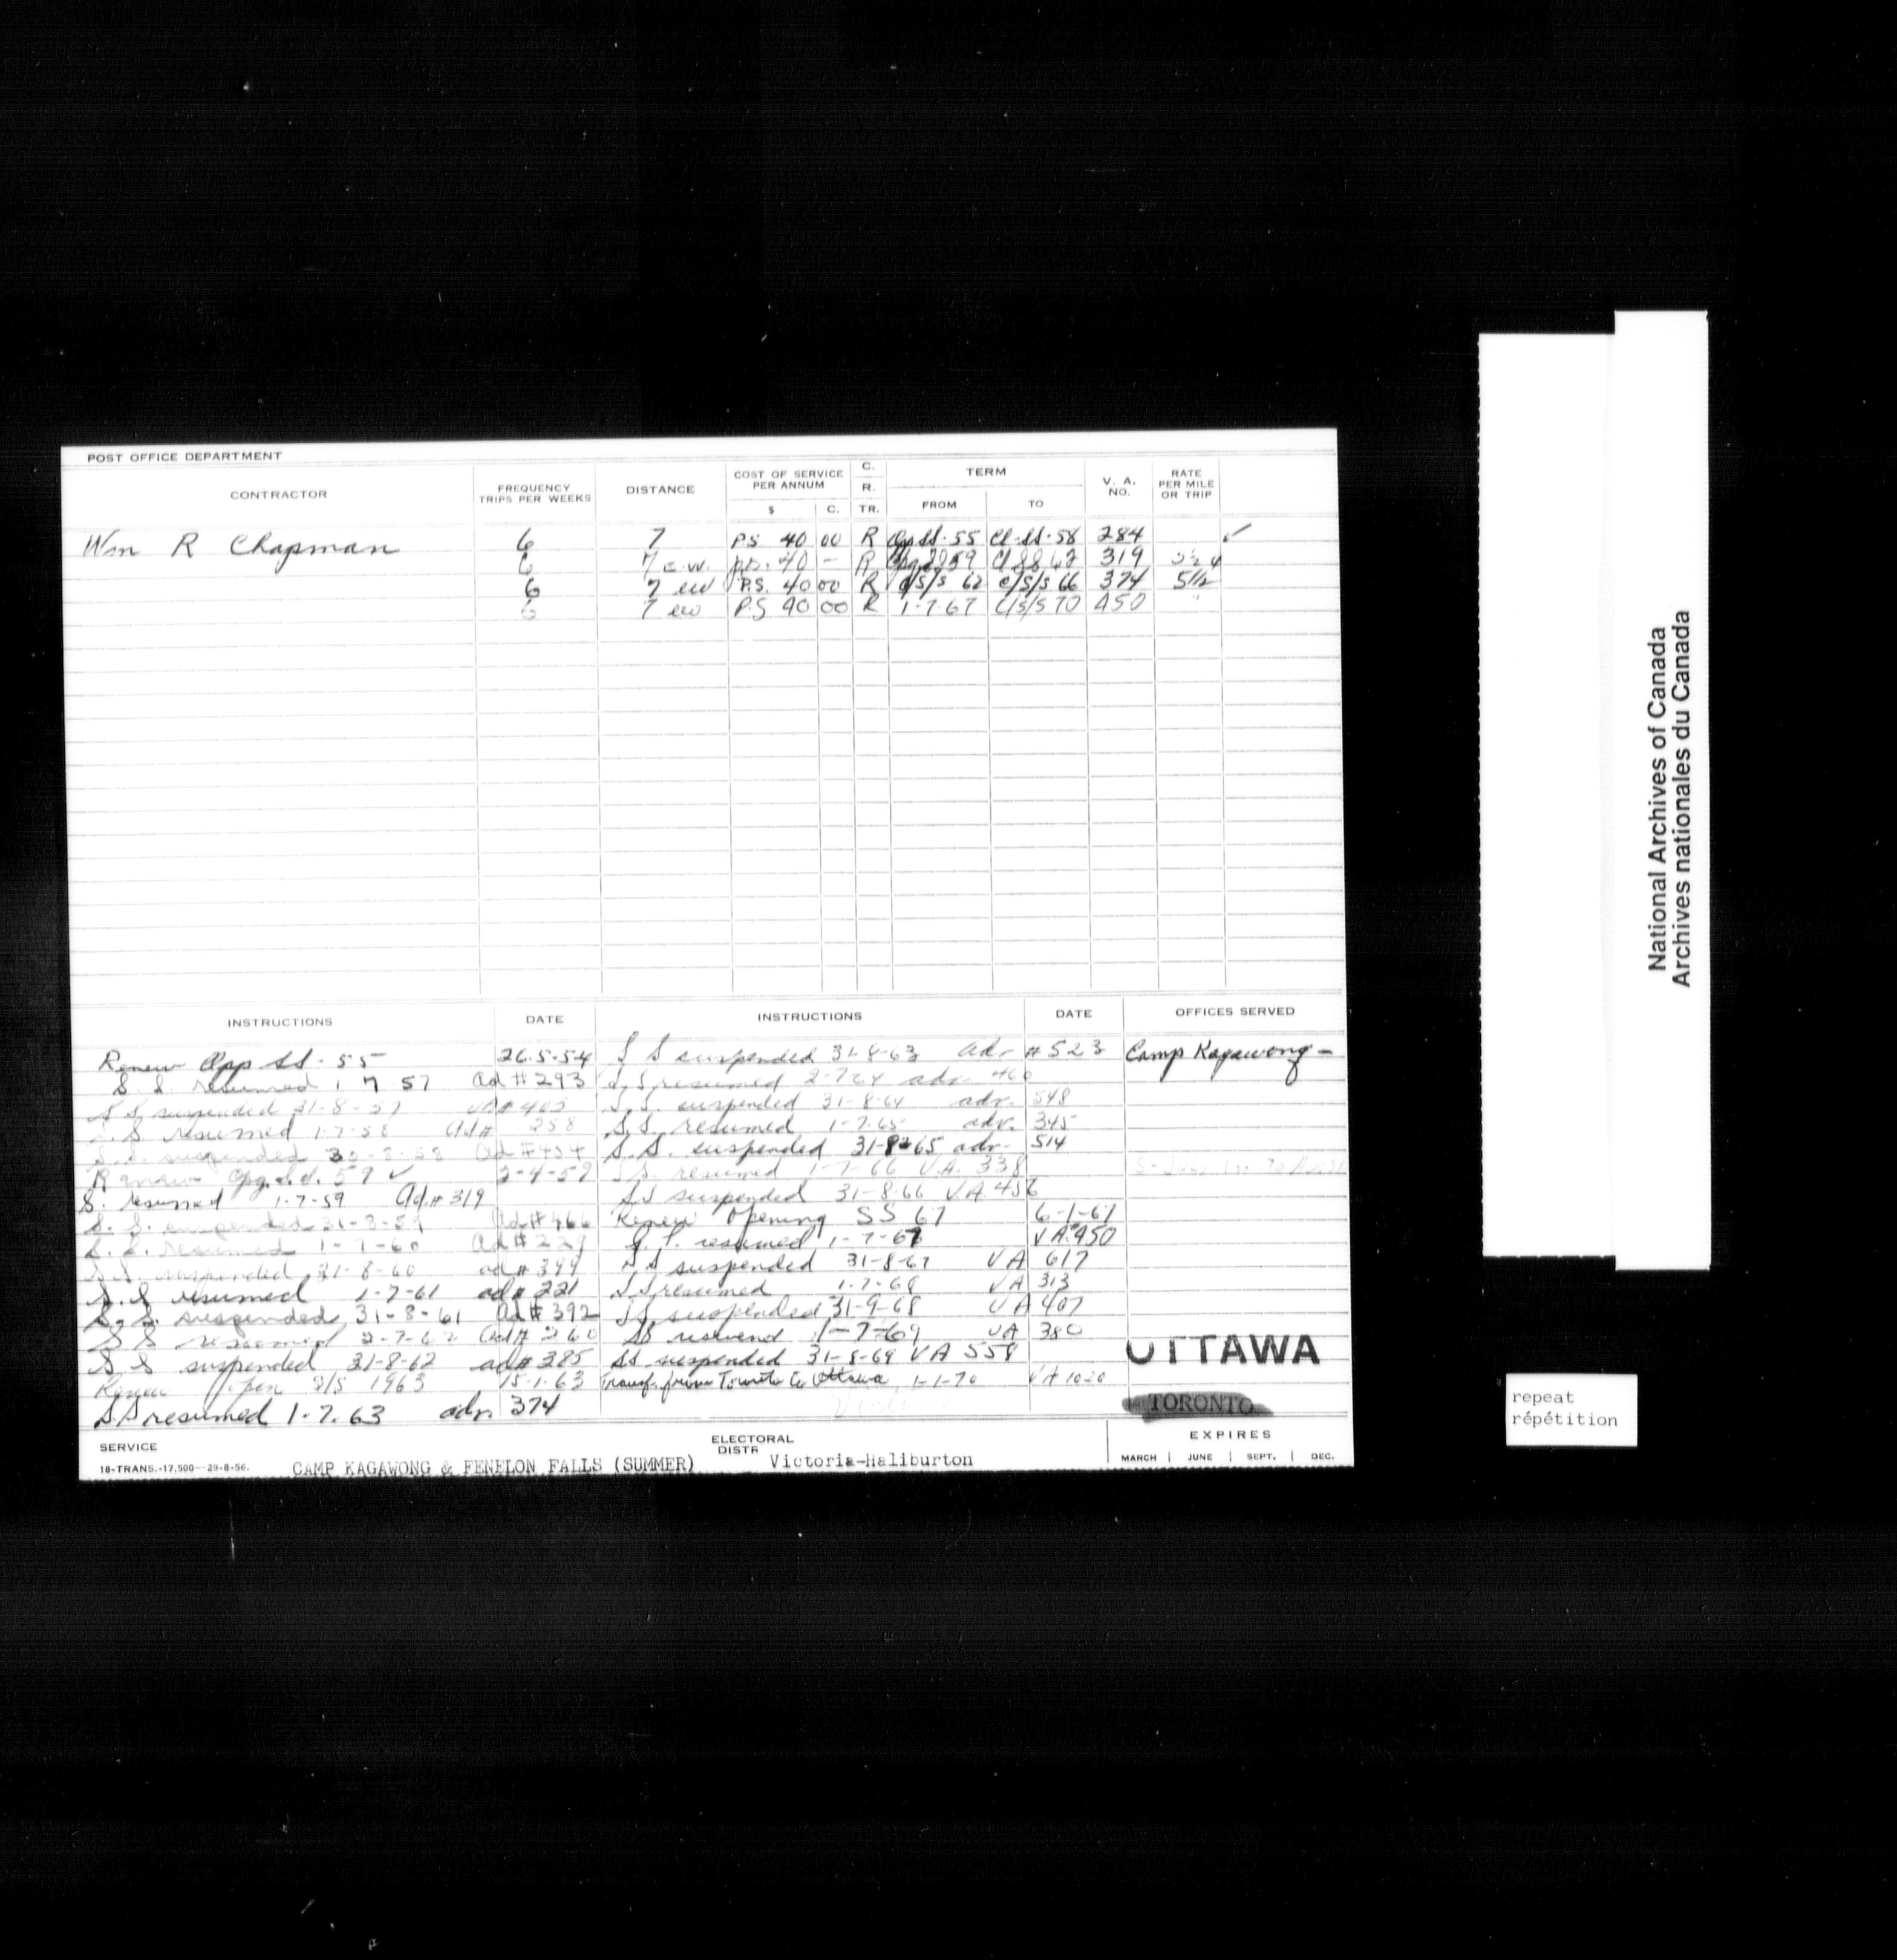 POST OFFICE DEPARTMENT
CONTRACTOR FREQUENCY TRIPS PER WEEKS DISTANCE COST OF SERVICE PER ANNUM $ C. C. R. TR. TERM FROM TO V. A. NO. RATE PER MILE OR TRIP
Wm R Chapman 6 7 P.S 40 00 R Opg SS. 55 Cl. SS. 58 284 ✓
6 7 e.w. p.s. 40 - R 319 5½
6 7 ew P.S. 40 00 R o/S/S 62 c/S/S 66 374 5½
6 7 ew P.S 40 00 R 1-7-67 C/S/S 70 450 "
INSTRUCTIONS DATE INSTRUCTIONS DATE OFFICES SERVED
Renew Opg SS. 55 26.5.54 S. S suspended 31-8-63 adv. # 523 Camp Kagawong -
S. S. resumed 1 7 57 Ad # 293 S. S resumed 2-7-64 adv. 460
S S suspended 31-8-57 Ad # 402 S. S. suspended 31-8-64 adv. 548
S. S. resumed 1-7-58 Ad # 258 S. S. resumed 1-7-65 adv. 345
S. S. suspended Ad # 454 S. S. suspended 31-8-65 adv. 514
Renew Opg. S.S. 59 ✓ 2-4-59 S.S. resumed 1-7-66 V.A. 338
S. resumed 1-7-59 Ad. # 319 S.S suspended 31-8-66 V.A. 456
S. S. suspended 31-8-59 Ad # 466 Renew Opening SS 67 6-1-67
S. S. resumed 1-7-60 Ad # 229 S. S. resumed 1-7-67 V A # 450
S. S. suspended 31-8-60 ad # 399 S S suspended 31-8-67 V A 617
S. S resumed 1-7-61 ad # 221 S S resumed 1-7-68 V A 313
S. S. suspended 31-8-61 Ad # 392 S S suspended 31-9-68 V A 407
S S resumed 2-7-62 Ad # 260 SS resumed 1-7-69 VA 380
S S suspended 31-8-62 ad # 285 SS suspended 31-8-69 V A 558 OTTAWA
Renew Open S/S 1963 15.1.63 Transf. from Toronto to Ottawa 1-1-70 V A 1020
S S resumed 1-7.63 adv. 374 TORONTO
SERVICE ELECTORAL DISTR EXPIRES
18-TRANS.-17,500--29-8-56. CAMP KAGAWONG & FENELON FALLS (SUMMER) Victoria-Haliburton MARCH JUNE SEPT. DEC.
National Archives of Canada
Archives nationales du Canada
repeat
répétition